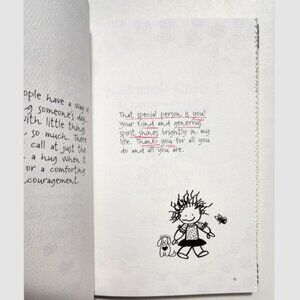 ople have a way of
g someone's day
with little things
so much. There
call at just the
a hug when it
or a comforting
couragement.
That special person is you!
Your kind and generous
spirit shines brightly in my
life. Thanks you for all you
do and all you are.